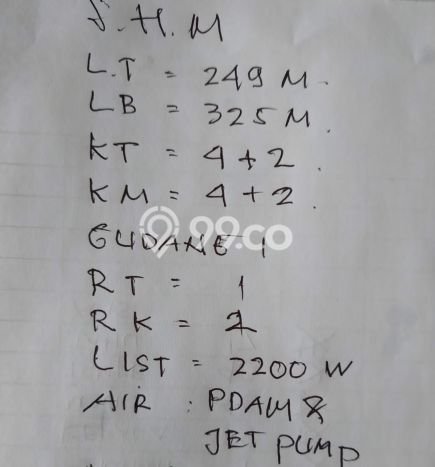 S.H.M
L.T = 249 M.
LB = 325 M.
KT = 4 + 2.
KM = 4 + 2.
GUDANG 1
99.co
RT = 1
RK =
LIST = 2200 W
AIR : PDAM &
JET PUMP